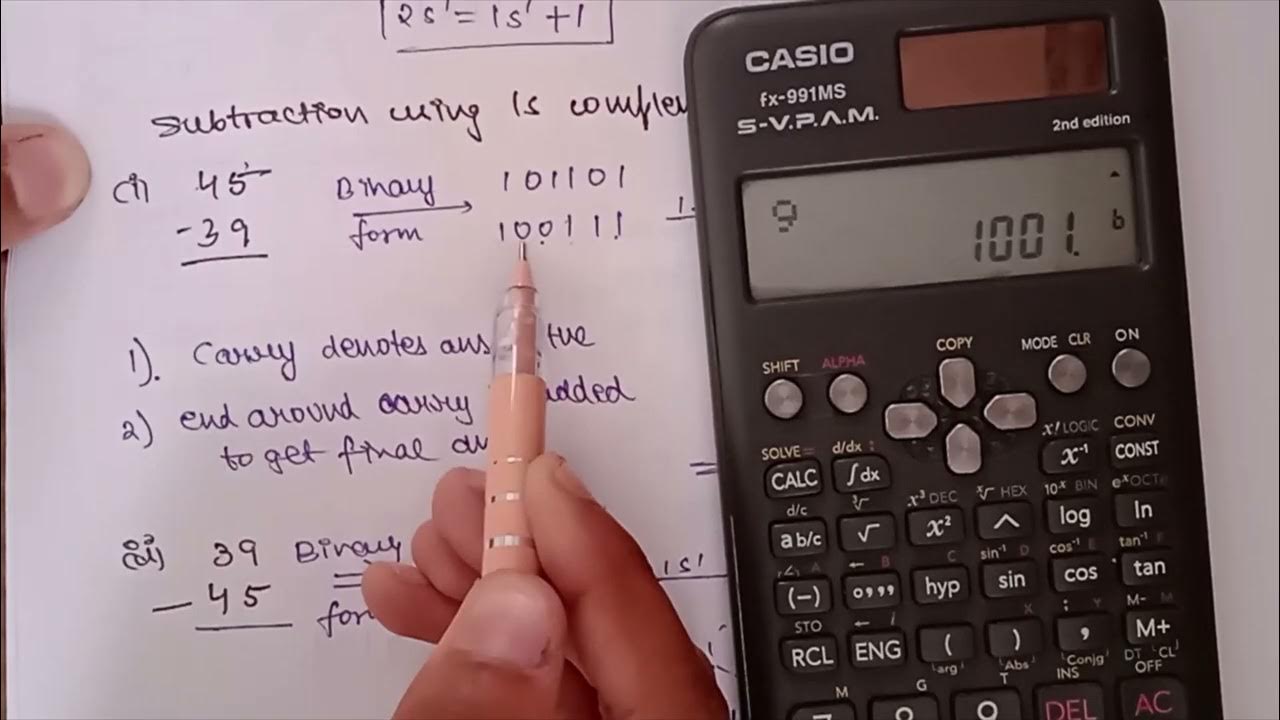 2s' = 1s' + 1
Subtraction using 1s
(i) 45 Binary 101101
- 39 form 100111
1). Carry denotes
2) end around carry added
to get final
(ii) 39 Binary
- 45
1s'
CASIO
fx-991MS
S-V.P.A.M.
2nd edition
9
1001. b
COPY MODE CLR ON
SHIFT ALPHA
x! LOGIC CONV
SOLVE = d/dx : x⁻¹ CONST
CALC ∫dx
d/c ³√ x³ DEC ˣ√ HEX 10ˣ BIN eˣ OCT
a b/c √ x² ^ log ln
∠ A ← B C sin⁻¹ D cos⁻¹ E tan⁻¹ F
(−) o,,, hyp sin cos tan
STO ← i X ; Y M-
RCL ENG ( ) , M+
arg Abs Conjg DT CL
M G T INS OFF
DEL AC